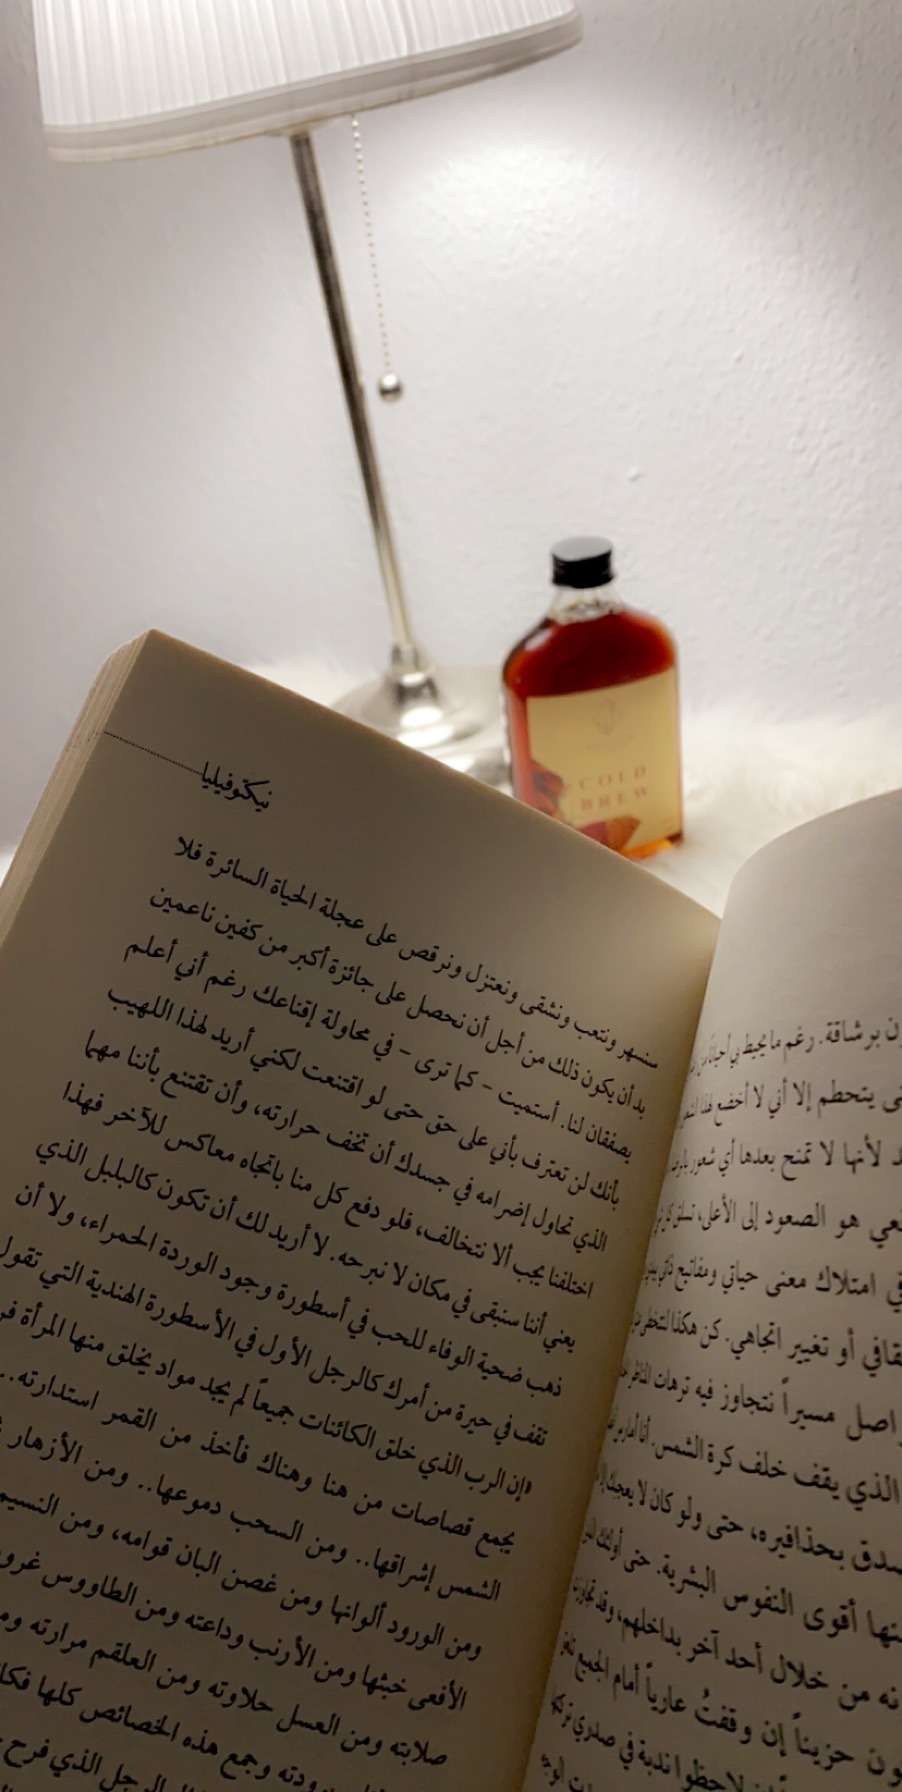 COLD
BREW
نيكتوفيليا
سنسهر ونتعب ونشقى ونعتزل ونرقص على عجلة الحياة السائرة فلا
بد أن يكون ذلك من أجل أن نحصل على جائزة أكبر من كفين ناعمين
يصفقان لنا. أستميت - كما ترى - في محاولة إقناعك رغم أني أعلم
بأنك لن تعترف بأني على حق حتى لو اقتنعت لكني أريد لهذا اللهيب
الذي تحاول إضرامه في جسدك أن تخف حرارته، وأن تقتنع بأننا مهما
اختلفنا يجب ألا نتخالف، فلو دفع كل منا باتجاه معاكس للآخر فهذا
يعني أننا سنبقى في مكان لا نبرحه. لا أريد لك أن تكون كالبلبل الذي
ذهب ضحية الوفاء للحب في أسطورة وجود الوردة الحمراء، ولا أن
تقف في حيرة من أمرك كالرجل الأول في الأسطورة الهندية التي تقول
«إن الرب الذي خلق الكائنات جميعاً لم يجد مواد يخلق منها المرأة
يجمع قصاصات من هنا وهناك فأخذ من القمر استدارته..
الشمس إشراقها.. ومن السحب دموعها.. ومن الأزهار
ومن الورود ألوانها ومن غصن البان قوامه، ومن النسيم
الأفعى خبثها ومن الأرنب وداعته ومن الطاووس
صلابته ومن العسل حلاوته ومن العلقم مرارته
وجمع هذه الخصائص كلها
الذي فرح
برشاقة. رغم ما يحيط بي أحياناً
يتحطم إلا أني لا أخضع لهذا
لأنها لا تمنح بعدها أي شعور
هو الصعود إلى الأعلى،
امتلاك معنى حياتي ومفاتيح
أو تغيير اتجاهي. كن هكذا
مسيراً نتجاوز فيه ترهات
الذي يقف خلف كرة الشمس. أنا
بحذافيره، حتى ولو كان لا يعجبك
أقوى النفوس البشرية. حتى أولئك
من خلال أحد آخر بداخلهم، وقد
حزيناً إن وقفتُ عارياً أمام الجميع
لاحظوا ندبة في صدري